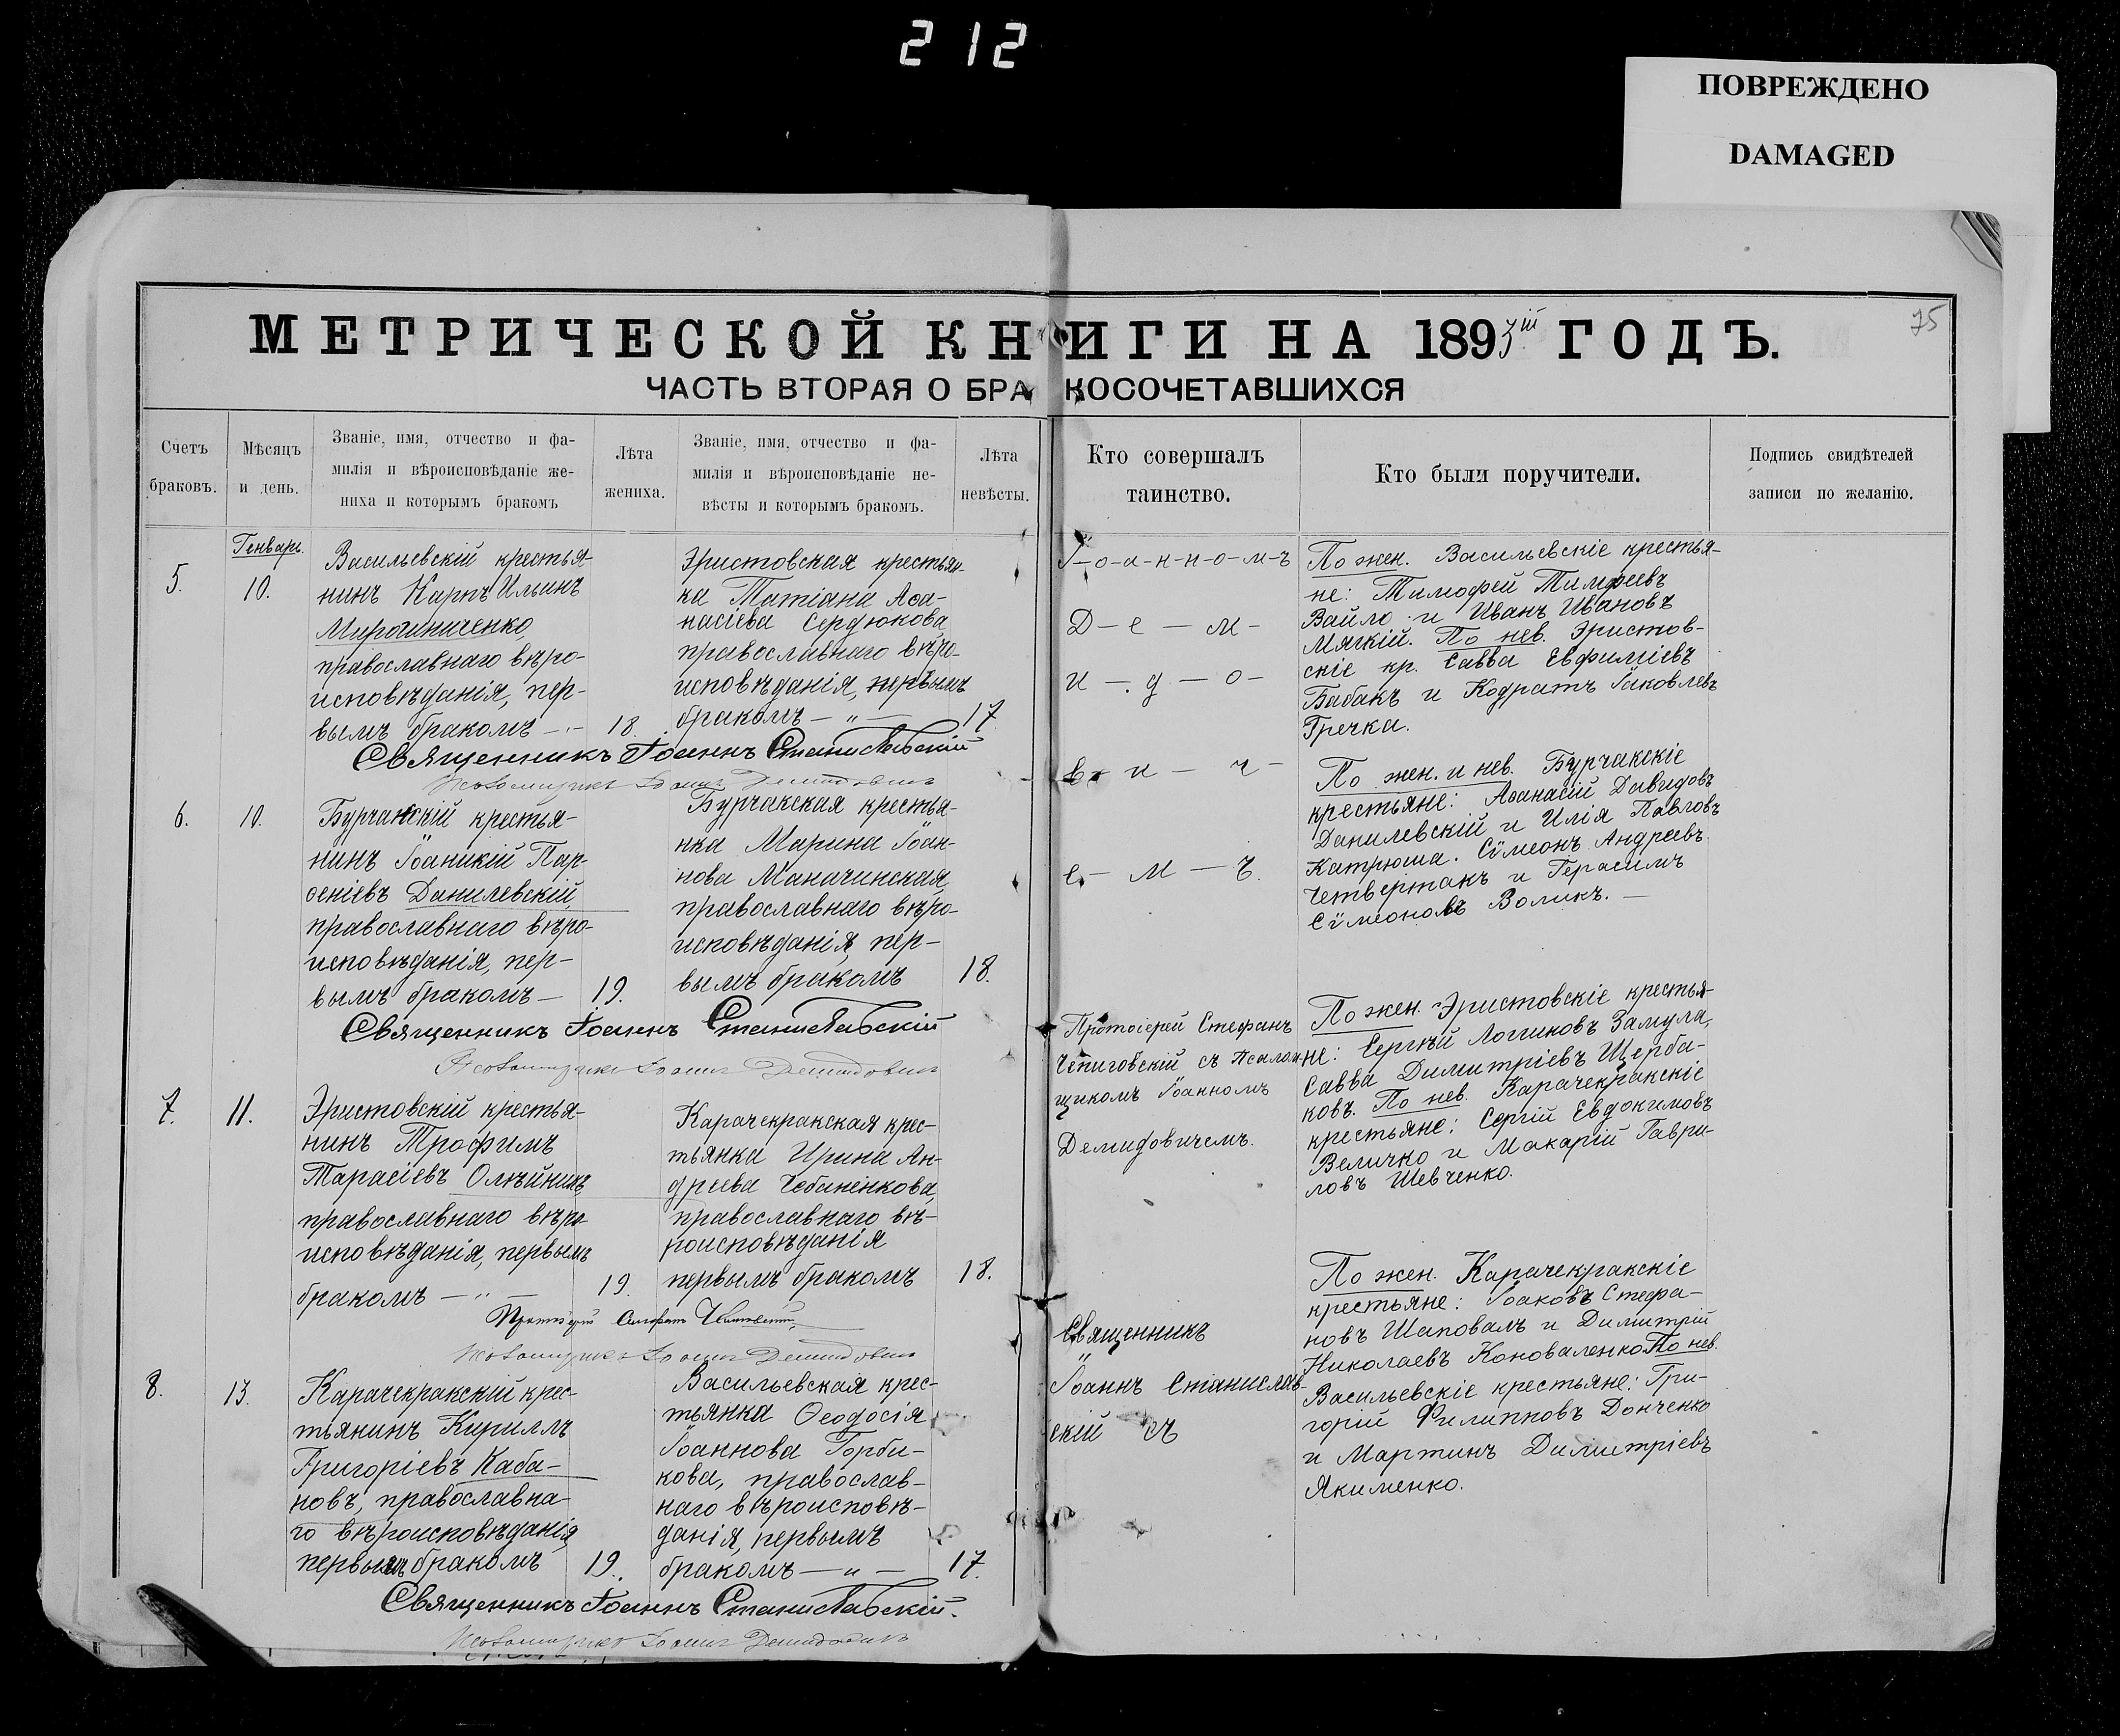 212
ПОВРЕЖДЕНО
DAMAGED
75
МЕТРИЧЕСКОЙ КНИГИ НА 1893ій ГОДЪ.
ЧАСТЬ ВТОРАЯ О БРАКОСОЧЕТАВШИХСЯ
Счетъ
браковъ.
Мѣсяцъ
и день.
Званіе, имя, отчество и фа-
милія и вѣроисповѣданіе же-
ниха и которымъ бракомъ
Лѣта
жениха.
Званіе, имя, отчество и фа-
милія и вѣроисповѣданіе не-
вѣсты и которымъ бракомъ.
Лѣта
невѣсты.
Кто совершалъ
таинство.
Кто были поручители.
Подпись свидѣтелей
записи по желанію.
Генварь.
5.
10.
Васильевскій крестья-
нинъ Карпъ Ильинъ
Мирошниченко,
православнаго вѣро-
исповѣданія, пер-
вымъ бракомъ —
18.
Эристовская крестьян-
ка Татіана Аѳа-
насіева Сердюкова
православнаго вѣро-
исповѣданія, первымъ
бракомъ — " —
17.
І-о-а-н-н-о-м-ъ
Д-е-м-
и-д-о-
в-и-ч-
е-м-ъ.
По жен. Васильевскіе крестья-
не: Тимофей Тимофеевъ
Вайло и Иванъ Ивановъ
Мягкій. По нев. Эристов-
скіе кр. Савва Евфиміевъ
Бабакъ и Кодратъ Іаковлевъ
Гречка.
Священникъ Іоаннъ Станиславскій
Псаломщикъ Іоаннъ Демидовичъ
6.
10.
Бурчакскій крестья-
нинъ Іоаникій Пар-
ѳеніевъ Данилевскій,
православнаго вѣро-
исповѣданія, пер-
вымъ бракомъ —
19.
Бурчакская крестья-
нка Марина Іоан-
нова Маначинская,
православнаго вѣро-
исповѣданія, пер-
вымъ бракомъ
18.
По жен. и нев. Бурчакскіе
крестьяне: Аѳанасій Давидовъ
Данилевскій и Илія Павловъ
Катрюша. Сѵмеонъ Андреевъ
Четвертакъ и Герасимъ
Сѵмеоновъ Воликъ. —
Священникъ Іоаннъ Станиславскій
Псаломщикъ Іоаннъ Демидовичъ
7.
11.
Эристовскій крестья-
нинъ Трофимъ
Тарасіевъ Олѣйникъ
православнаго вѣро-
исповѣданія, первымъ
бракомъ — " —
19.
Карачекракская крес-
тьянка Ирина Ан-
дреева Чебаненкова,
православнаго вѣ-
роисповѣданія
первымъ бракомъ
18.
Протоіерей Стефанъ
Чепиговскій съ Псалом-
щикомъ Іоанномъ
Демидовичемъ.
По жен. Эристовскіе крестья-
не: Сергѣй Логгиновъ Замула,
Савва Димитріевъ Щерба-
ковъ. По нев. Карачекракскіе
крестьяне: Сергій Евдокимовъ
Величко и Макарій Гаври-
ловъ Шевченко.
Протоіерей Стефанъ Чепиговскій
Псаломщикъ Іоаннъ Демидовичъ
8.
13.
Карачекракскій крес-
тьянинъ Кириллъ
Григоріевъ Каба-
новъ, православна-
го вѣроисповѣданія,
первымъ бракомъ
19.
Васильевская крес-
тьянка Ѳеодосія
Іоаннова Горби-
кова, православ-
наго вѣроисповѣ-
данія, первымъ
бракомъ — " —
17.
Священникъ
Іоаннъ Станислав-
скій съ
По жен. Карачекракскіе
крестьяне: Іаковъ Стефа-
новъ Шаповалъ и Димитрій
Николаевъ Коноваленко. По нев.
Васильевскіе крестьяне: Гри-
горій Филипповъ Донченко
и Мартинъ Димитріевъ
Якименко.
Священникъ Іоаннъ Станиславскій.
Псаломщикъ Іоаннъ Демидовичъ